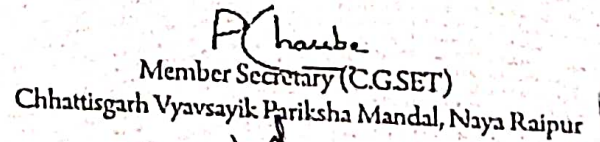 PChaube
Member Secretary (C.G.SET)
Chhattisgarh Vyavsayik Pariksha Mandal, Naya Raipur